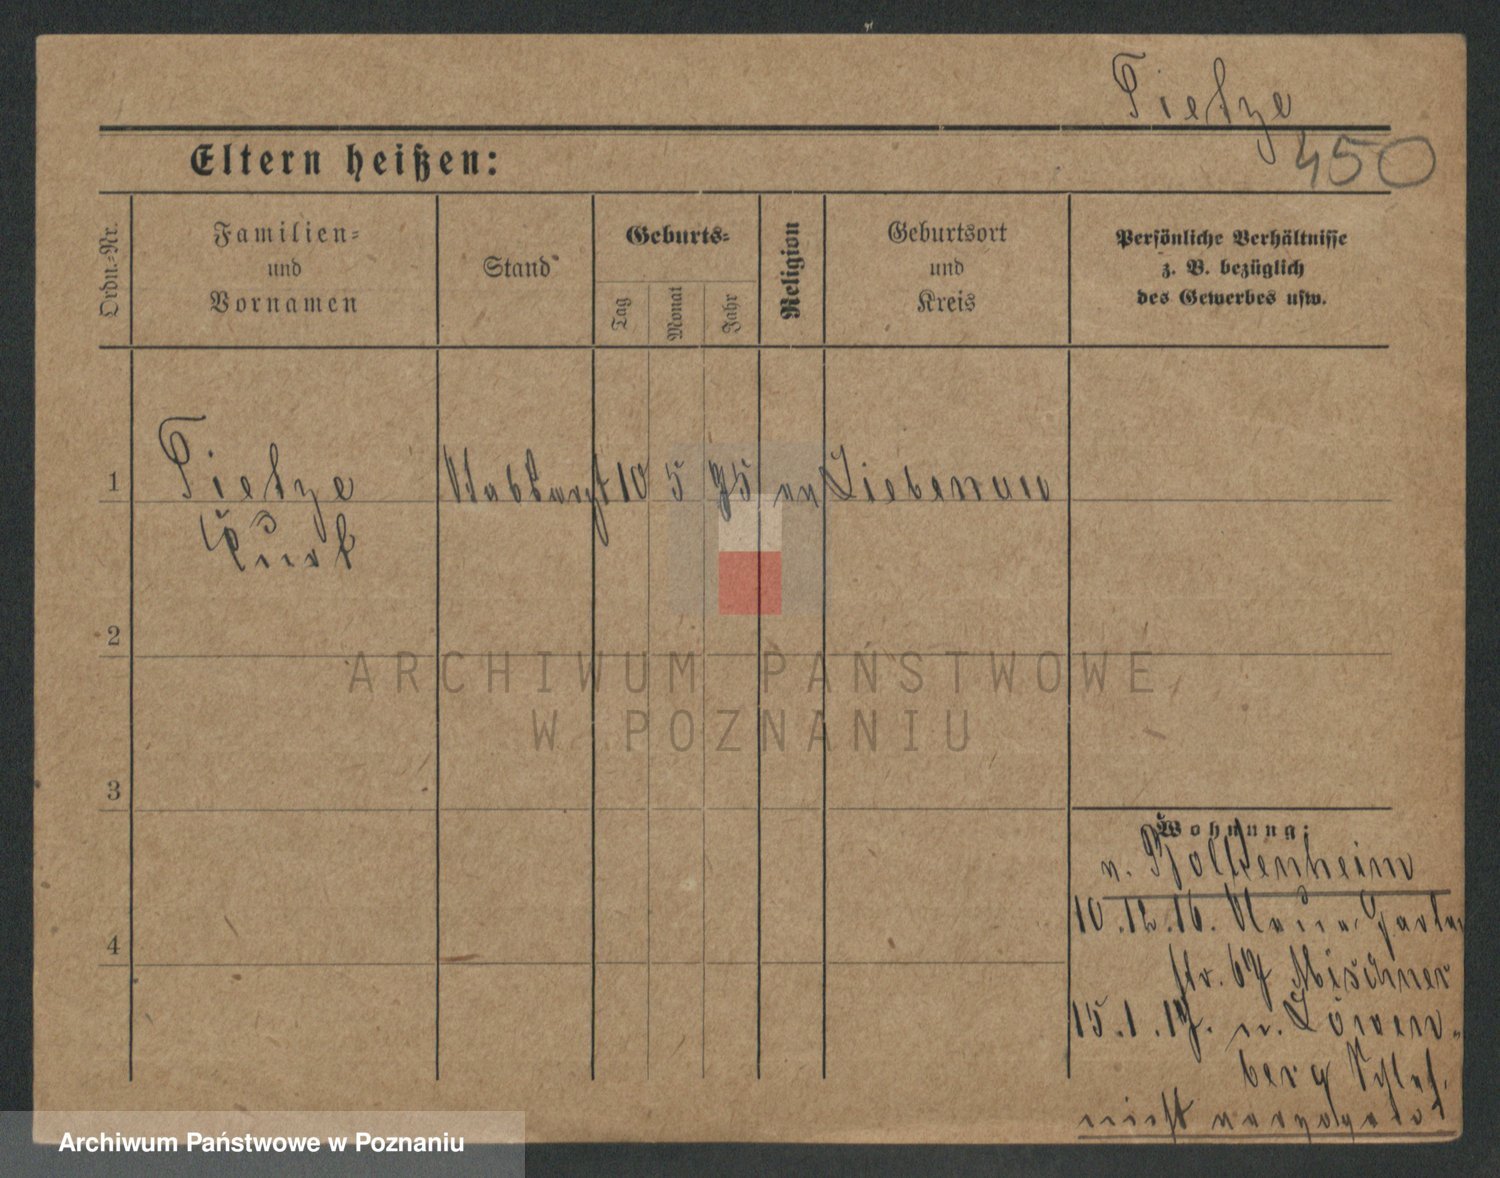 Tietze
450
Eltern heißen:
Ordn.-Nr.
Familien-
und
Vornamen
Stand
Geburts-
Tag
Monat
Jahr
Religion
Geburtsort
und
Kreis
Persönliche Verhältnisse
z. B. bezüglich
des Gewerbes usw.
1
Tietze
Kurt
Stabsarzt
10
5
75
Liebenau
2
ARCHIWUM PAŃSTWOWE
W POZNANIU
3
Wohnung:
n. Bolkenheim
10.12.16. Neue Garten
str. 67 Mischner
15.1.17. n. Löwen-
berg Schles.
nicht
4
Archiwum Państwowe w Poznaniu